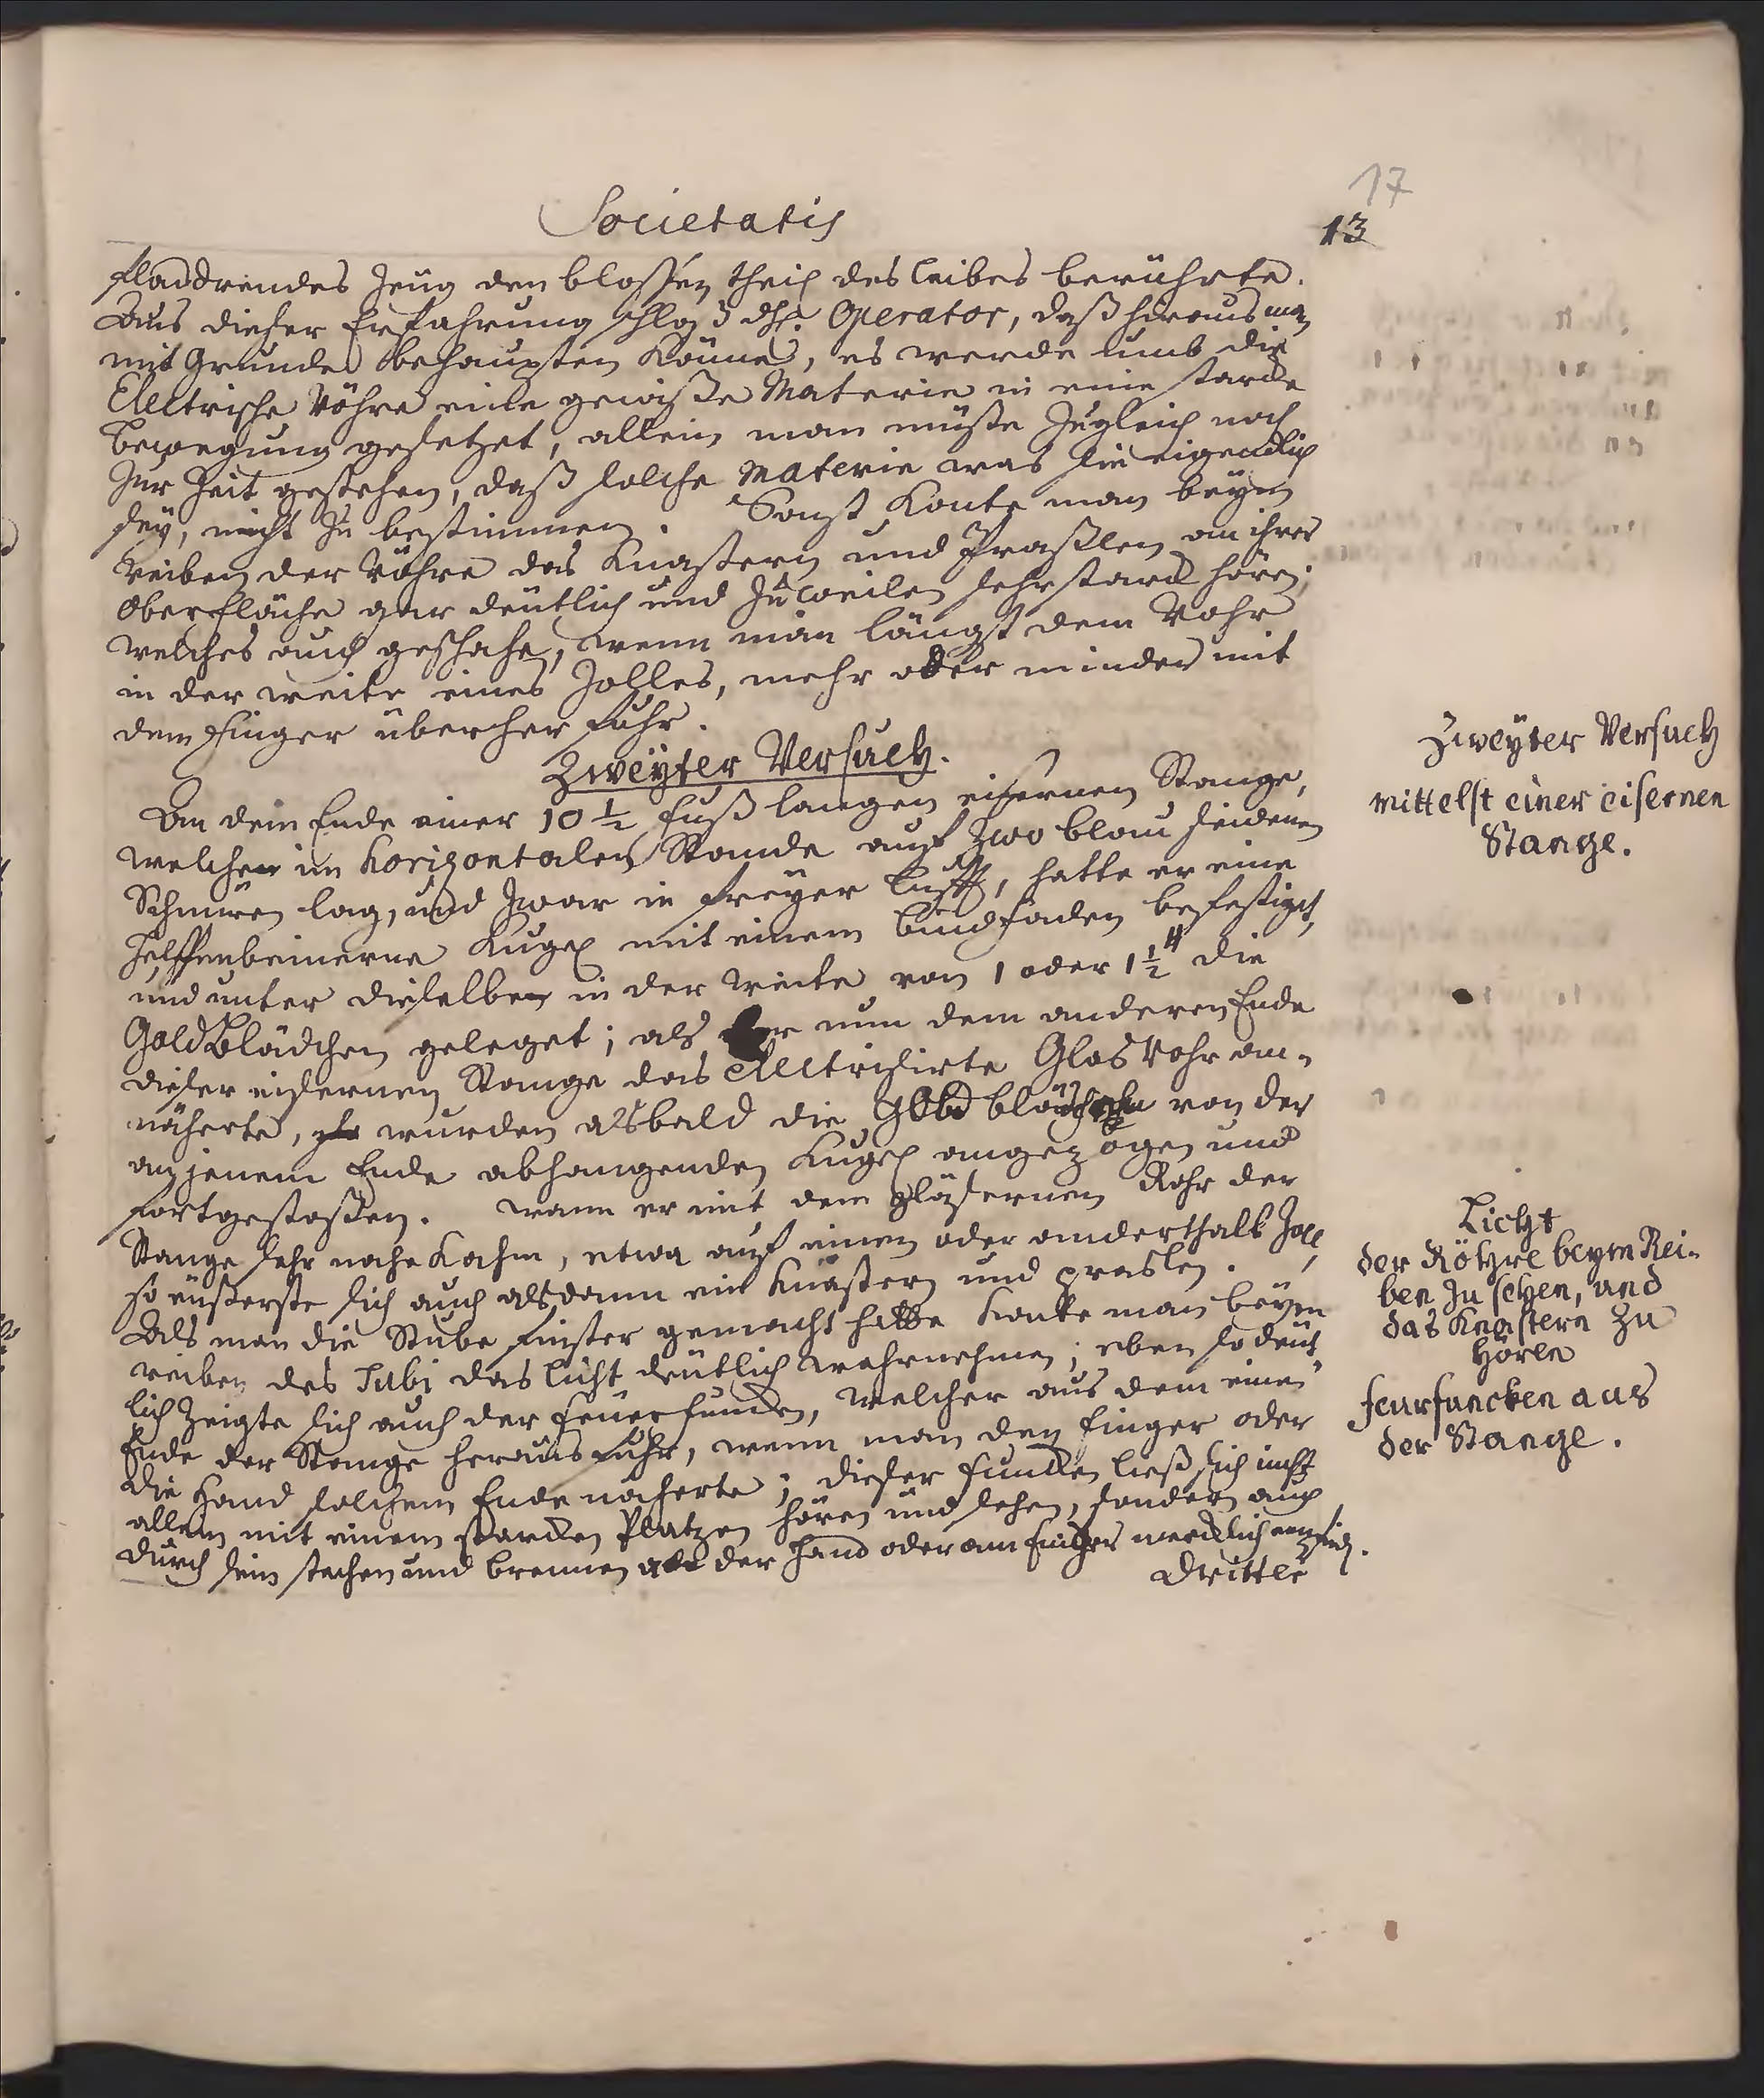 17
Societatis
13
fladdrendes Zeug den blossen theil des leibes berührte.
Aus dieser Erfahrung schloß Operator, daß hieraus man
mit Grunde behaupten könne, es werde umb die
Electrische Röhre eine gewiße Materie in eine starcke
bewegung gesetzet, allein man müste zugleich noch
zur Zeit gestehen, daß solche Materie was sie eigendlich
seÿ, nicht zu bestimmen. Sonst konte man beÿm
reiben der Röhre das Knastern und Praßlen an ihrer
Oberfläche gar deütlich und zuweilen sehr starck hören;
welches auch geschahe, wenn man längst dem Rohr
in der weite eines Zolles, mehr oder minder mit
dem Finger überher fuhr.
Zweÿter Versuch.
An dem Ende einer 10 1/2 fuß langen eisernen Stange,
welche im Horizontalen Stande auf zwo blau seidenen
Schnüren lag, und zwar in freÿer lufft, hatte er eine
helffenbeinerne Kugel mit einem bindfaden befestiget,
und unter dieselbe in der weite von 1 oder 1 1/2 " die
Goldblädchen geleget; als er nun dem anderen Ende
dieser eisernen Stange das electrisirte Glas Rohr an-
näherte, wurden alsbald die Gold blädchen von der
an jenem Ende abhangenden Kugel angezogen und
fortgestoßen. wann er mit dem gläsernen Rohr der
Stange sehr nahe kahm, etwa auf einen oder anderthalb Zoll,
so eüßerste sich auch alsdann ein Knastern und praslen.
Als man die Stube finster gemacht hatte konte man beÿm
reiben des Tubi das licht deütlich wahrnehmen; eben so deüt
lich zeigte sich auch der feuerfuncken, welcher aus dem einen
Ende der Stange heraus fuhr, wenn man den finger oder
die Hand solchem Ende näherte; dieser funcken ließ sich nicht
allein mit einem starcken Platzen hören und sehen, sondern auch
durch sein stechen und brennen an der Hand oder am finger mercklich empfind.
Dritter
Zweÿter Versuch
mittelst einer eisernen
Stange.
Licht
der Röhre beym Rei-
ben zu sehen, und
das Knastern zu
hören
feurfuncken aus
der Stange.